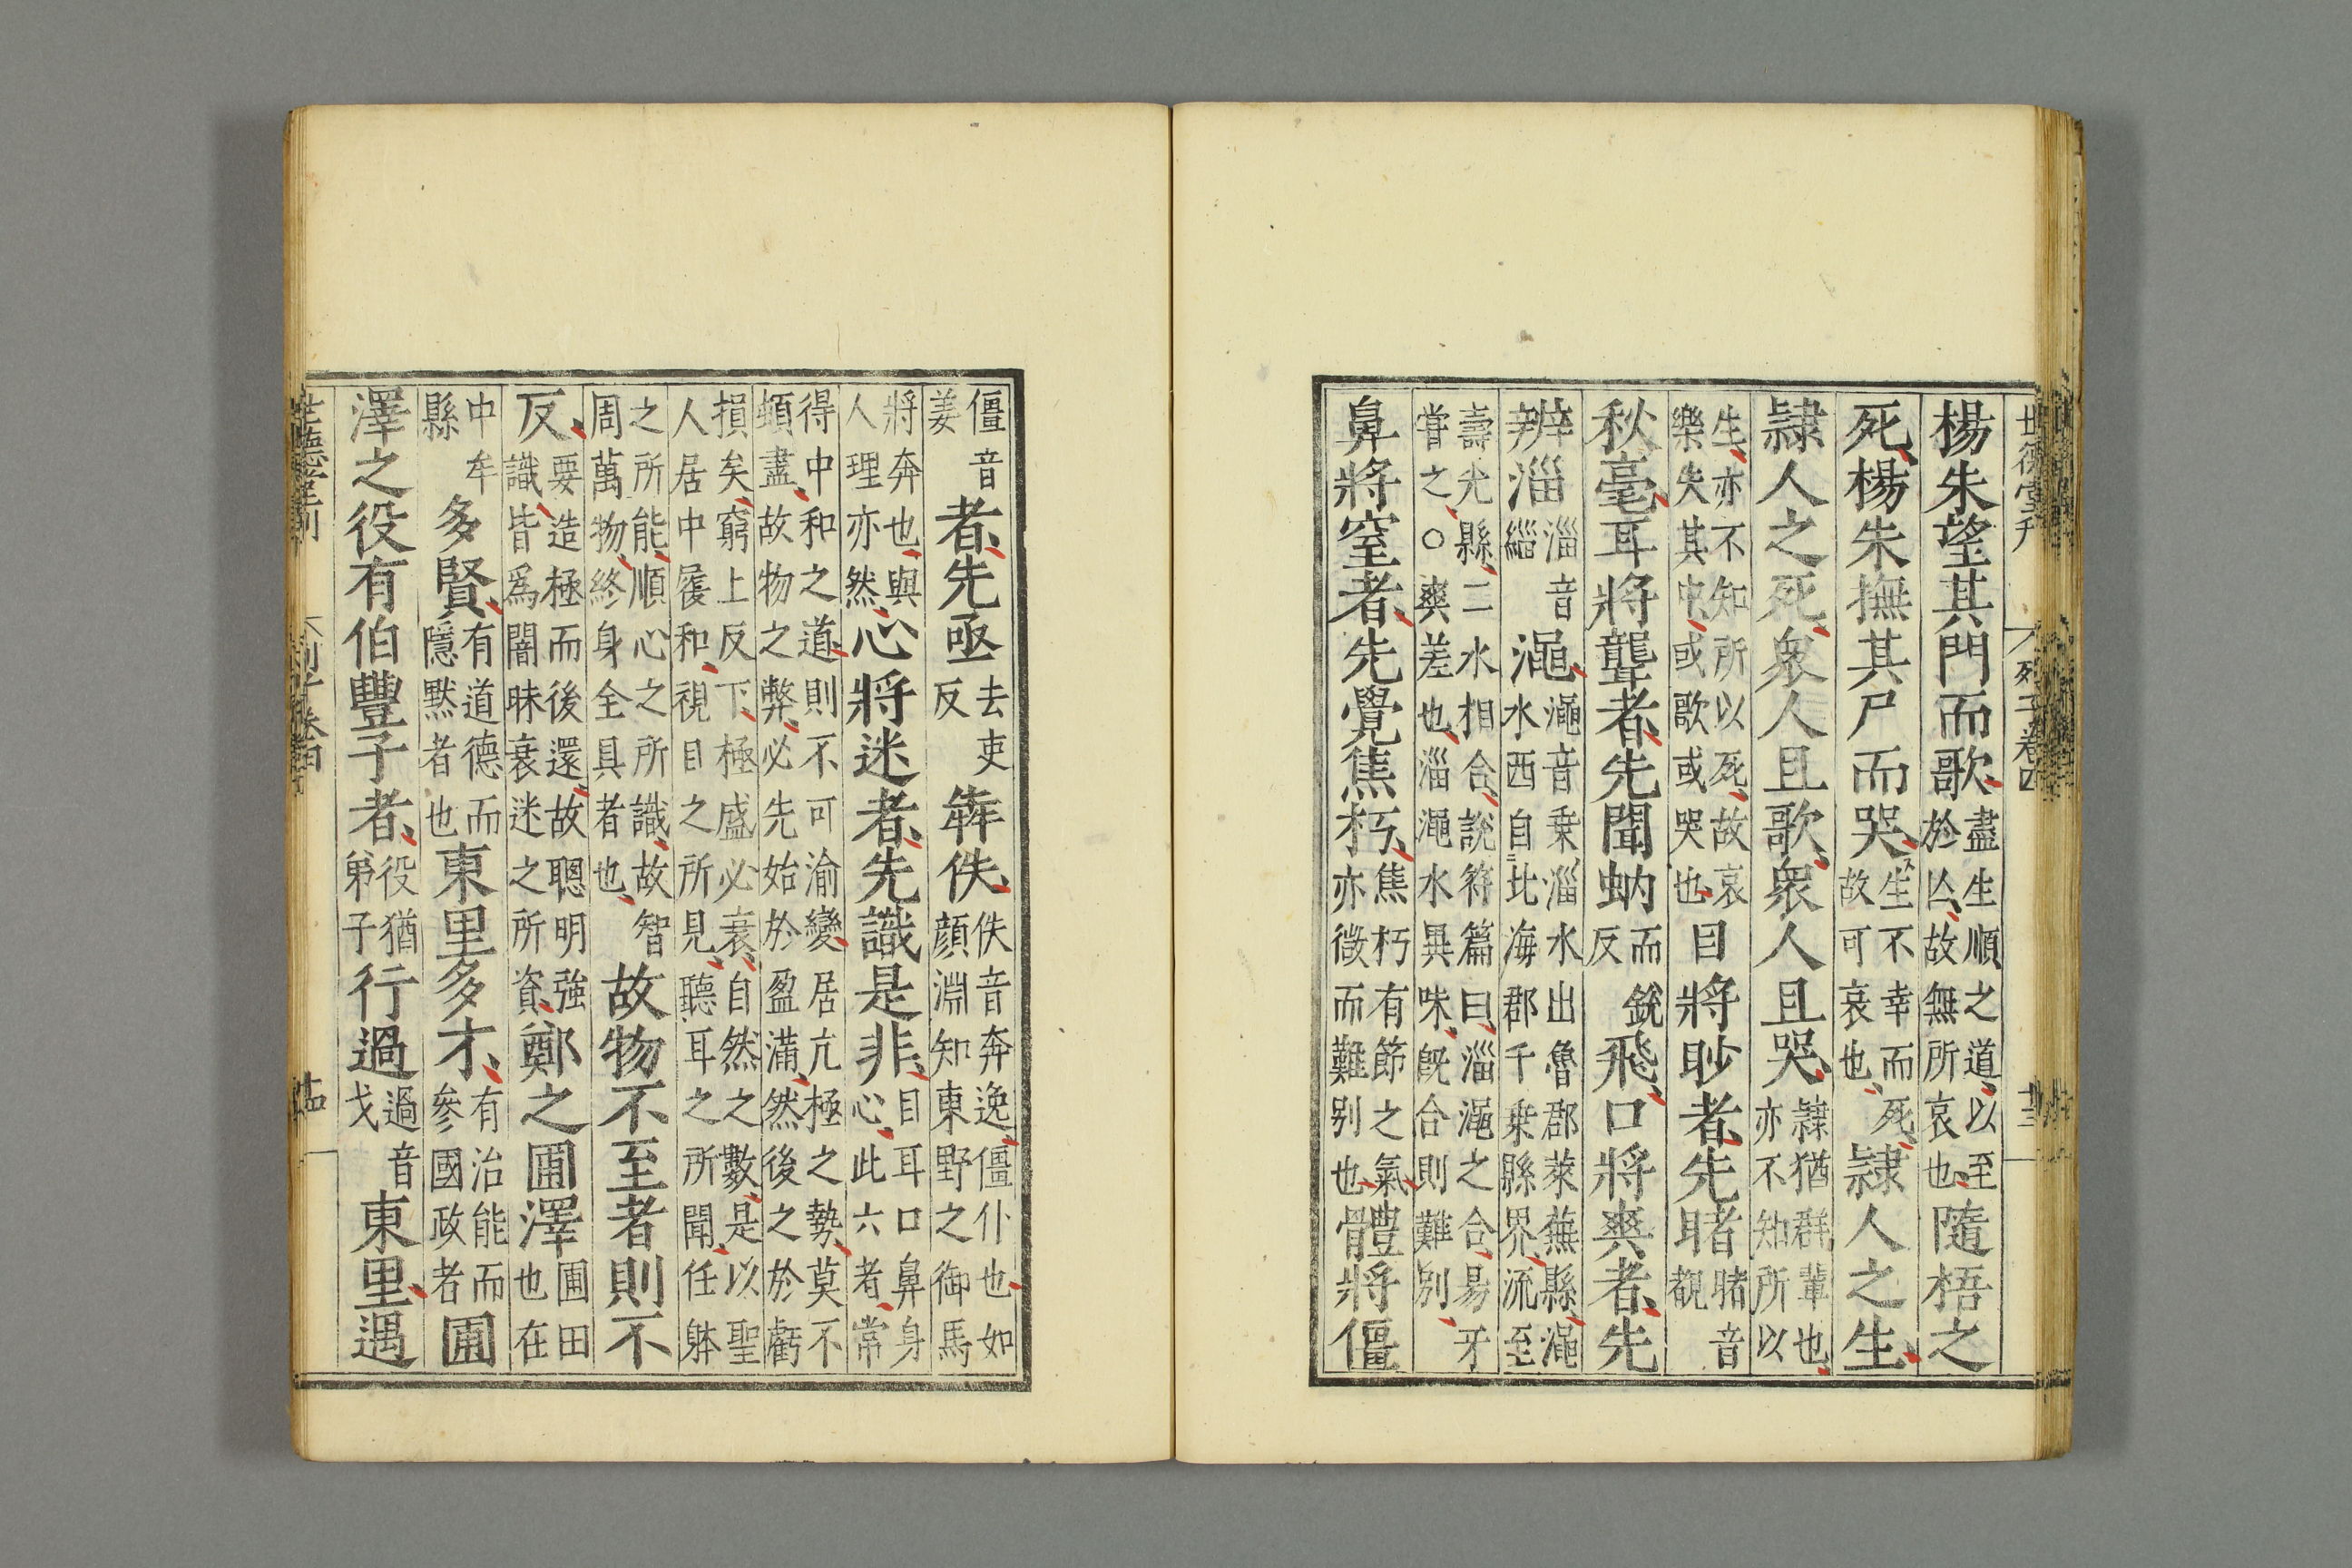 世德堂刊 列子卷四 十三
楊朱望其門而歌盡生順之道以至於亾故無所哀也隨梧之
死楊朱撫其尸而哭生不幸而死故可哀也隷人之生
隷人之死衆人且歌衆人且哭隷猶群輩也亦不知所以
生亦不知所以死故哀樂失其中或歌或哭也目將眇者先睹睹音覩
秋毫耳將聾者先聞蚋而銳反飛口將爽者先
辨淄淄音緇澠澠音乗淄水出魯郡萊蕪縣澠水西自北海郡千乗縣界流至
壽光縣二水相合說符篇曰淄澠之合易牙嘗之○爽差也淄澠水異味旣合則難別
鼻將窒者先覺焦朽焦朽有節之氣亦微而難別也體將僵
僵音姜者先亟去吏反犇佚佚音奔逸僵仆也如顏淵知東野之御馬
將奔也與人理亦然心將迷者先識是非目耳口鼻身心此六者常
得中和之道則不可渝變居亢極之勢莫不頓盡故物之弊必先始於盈滿然後之於虧
損矣窮上反下極盛必衰自然之數是以聖人居中履和視目之所見聽耳之所聞任躰
之所能順心之所識故智周萬物終身全具者也故物不至者則不
反要造極而後還故聰明強識皆爲闇昧衰迷之所資鄭之圃澤圃田也在
中牟縣多賢有道德而隱默者也東里多才有治能而參國政者圃
澤之役有伯豐子者役猶弟子行過過音戈東里遇
世德堂刊 列子卷四 十四